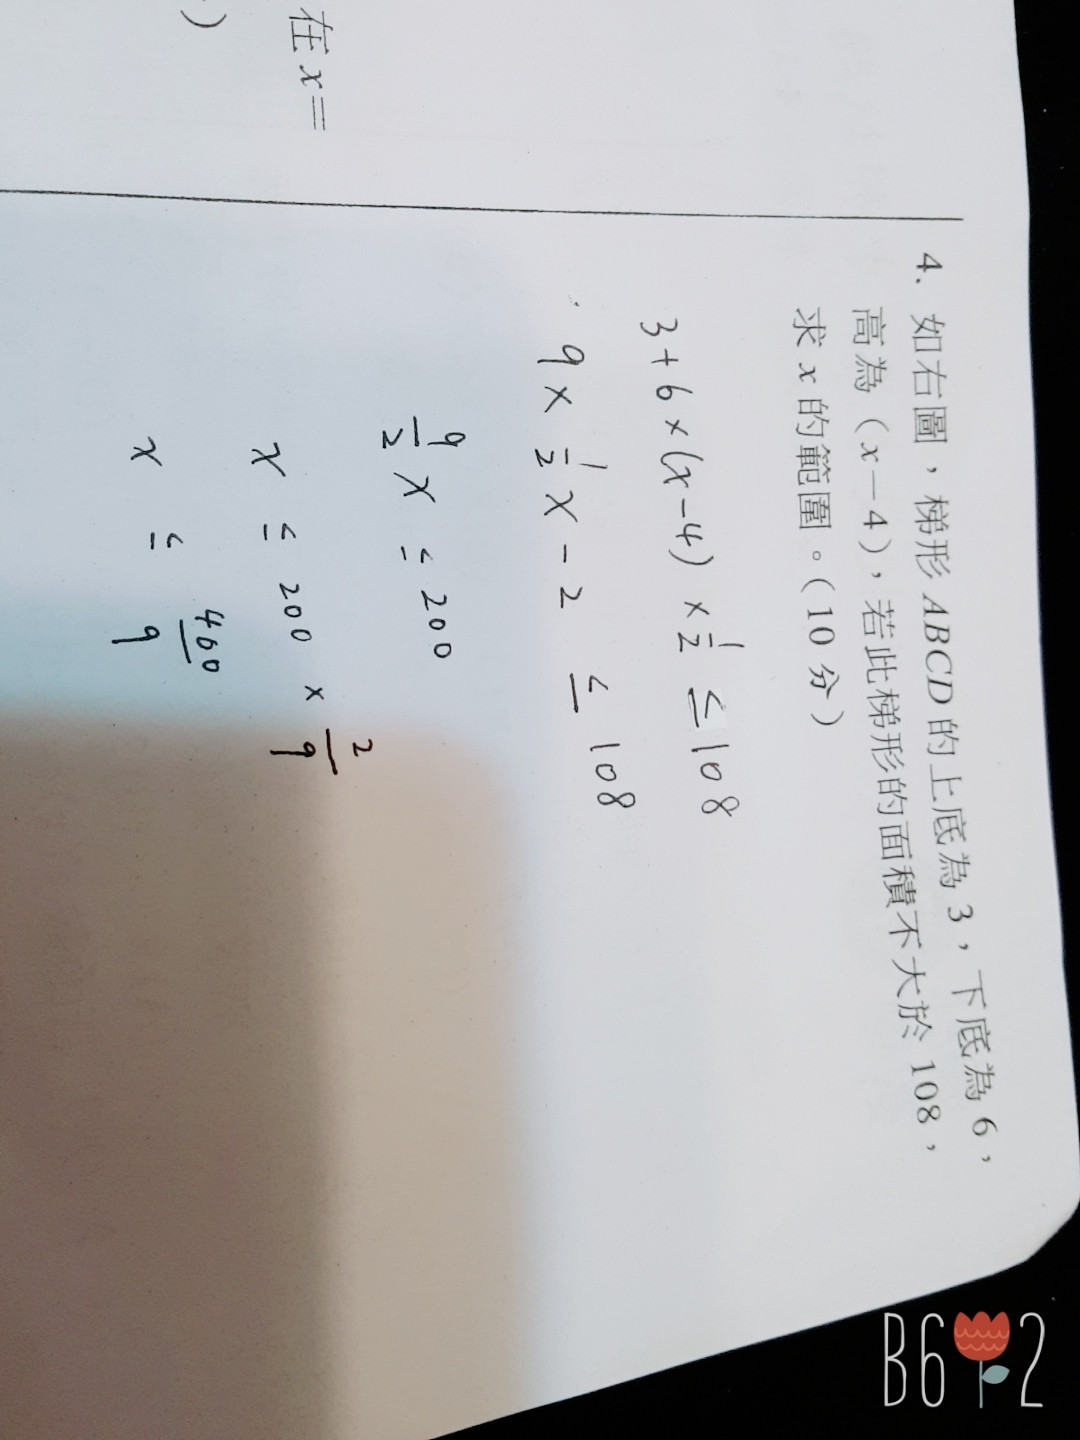 在 x =
)
4、如右圖，梯形 ABCD 的上底為 3，下底為 6，
高為（x－4），若此梯形的面積不大於 108，
求 x 的範圍。（10 分）
3 + 6 × (x - 4) × 1/2 ≤ 108
9 × 1/2 x - 2 ≤ 108
9/2 x ≤ 200
x ≤ 200 × 2/9
x ≤ 460/9
B6 2